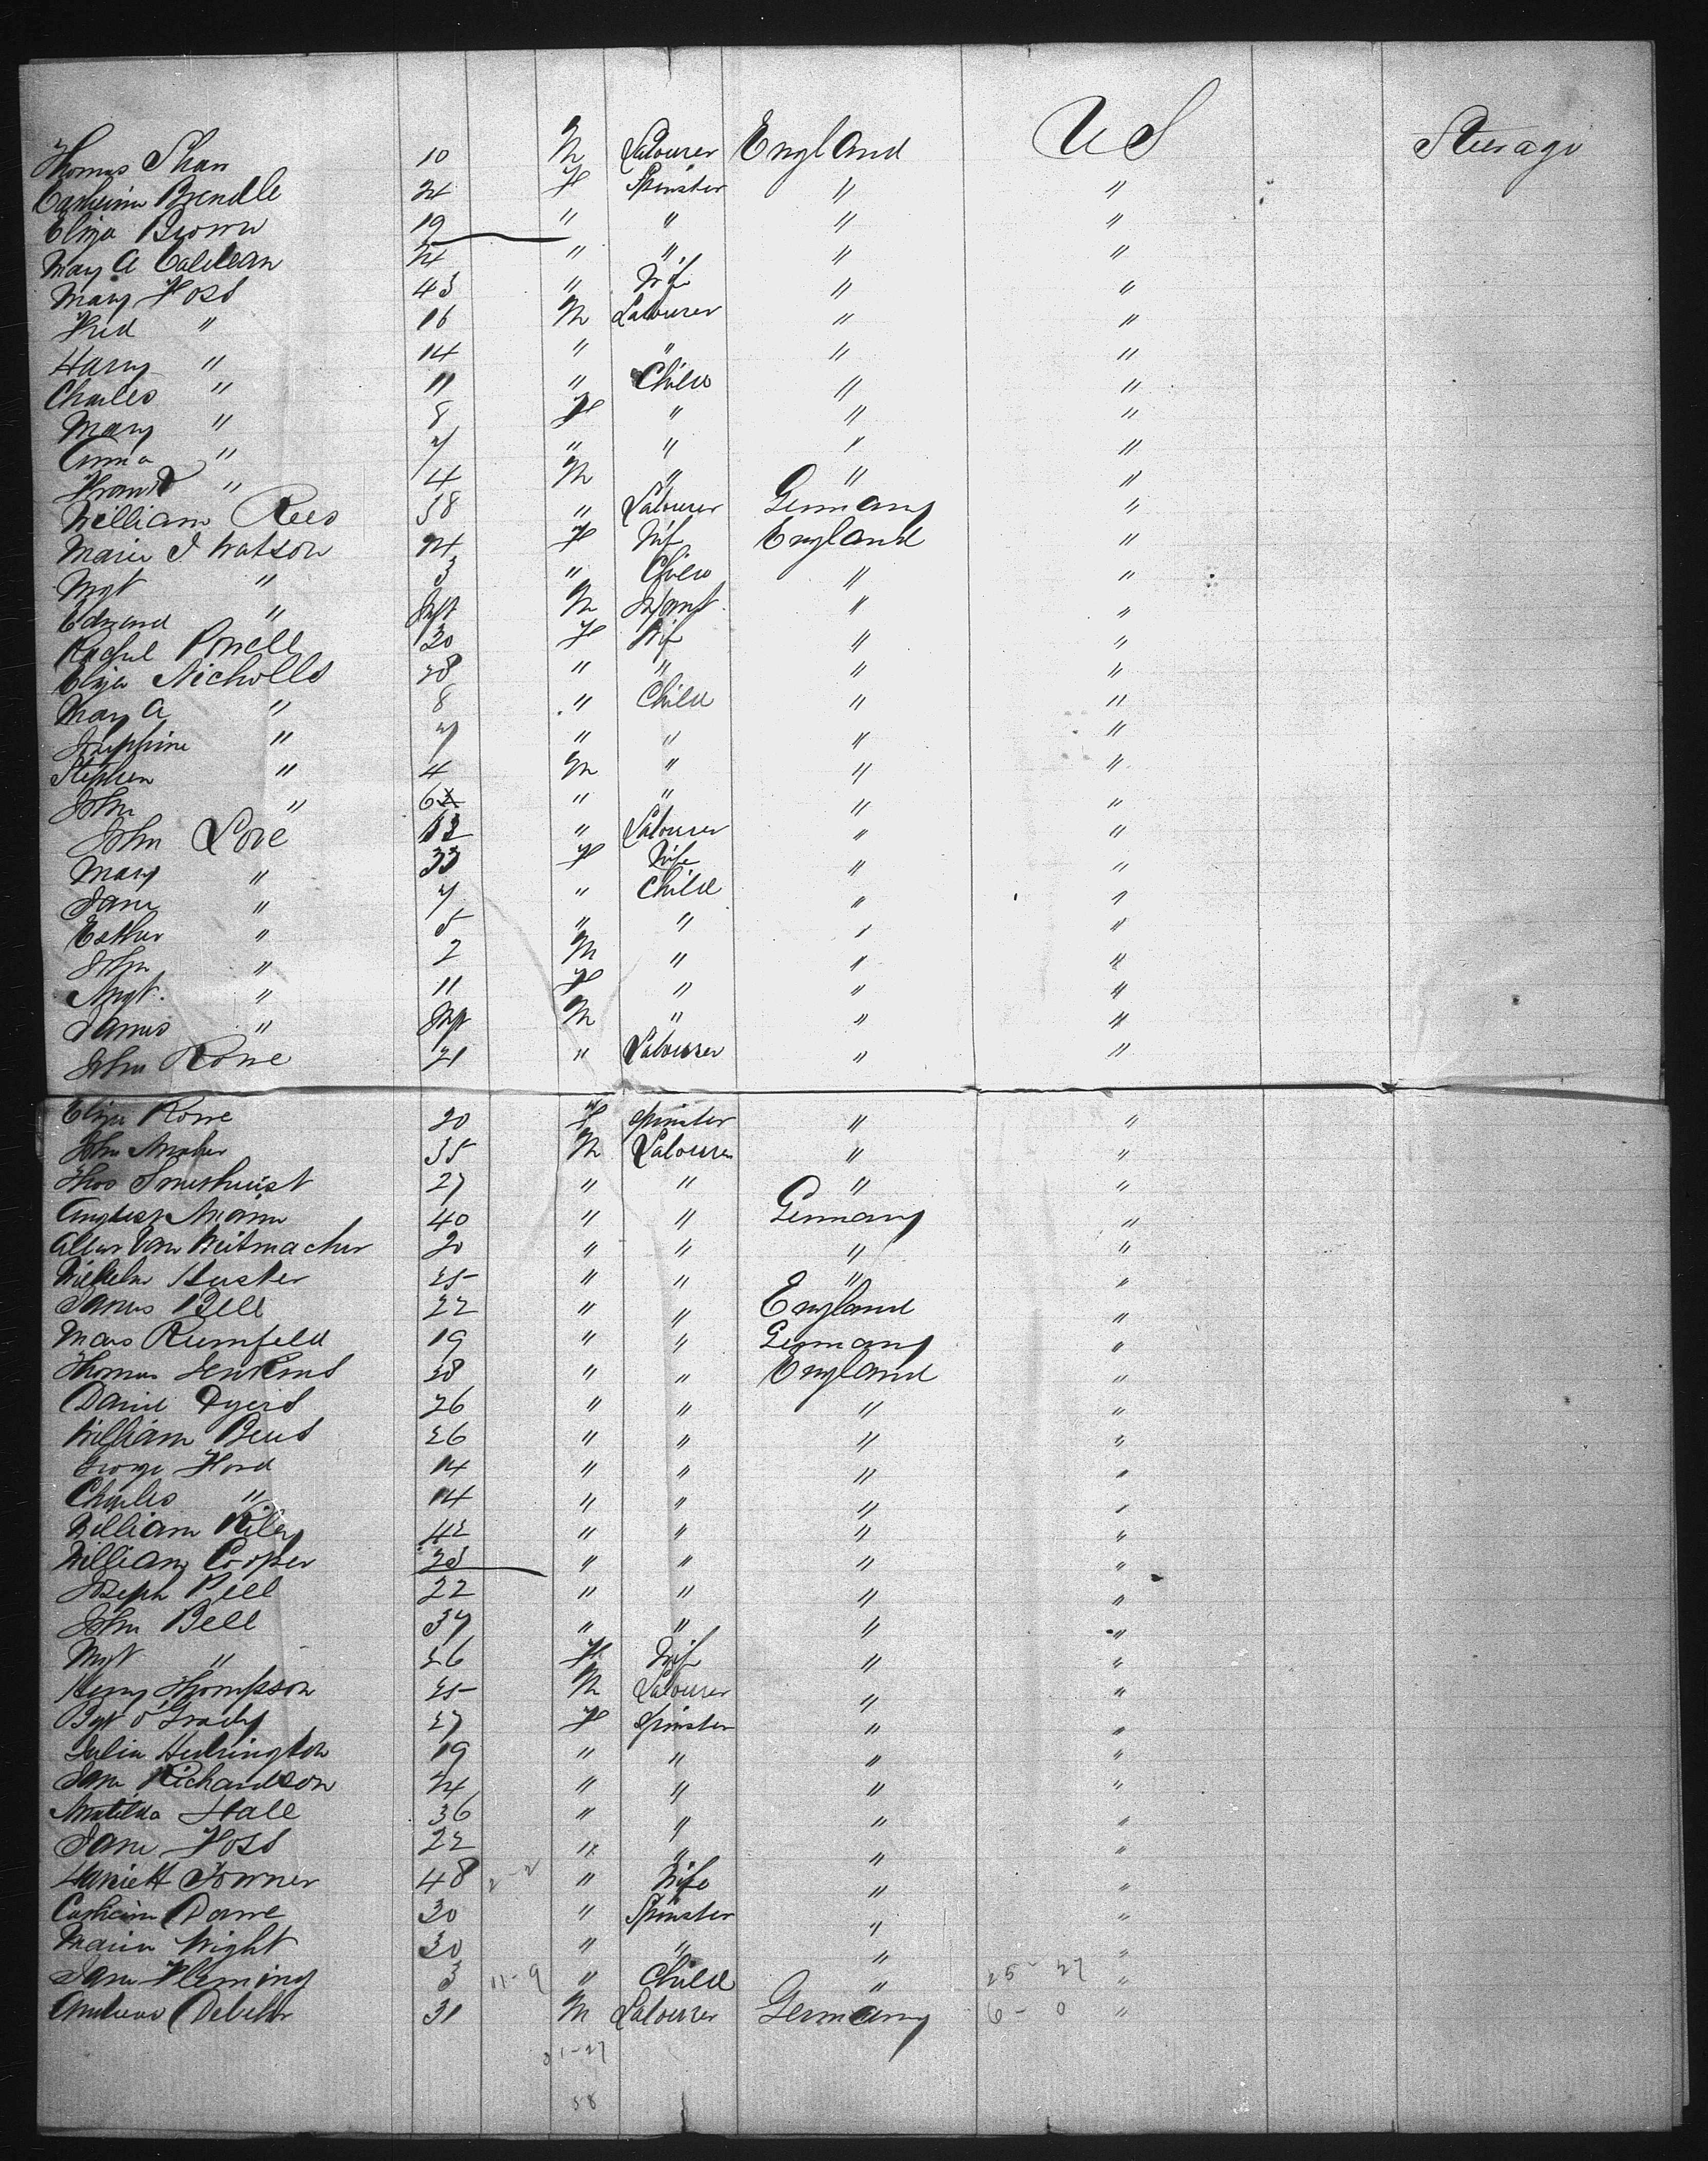 Thomas Shan 10 M Labourer England US Steerage
Catherine Brendle 24 F Spinster " "
Eliza Brown 19 " " " "
Mary A 24 " " " "
Mary Foss 43 " Wife " "
Fred " 16 M Labourer " "
Harry " 14 " " " "
Charles " 11 " Child " "
Mary " 8 F " " "
Anna " 7 " " " "
Frank " 4 M " " "
William Rees 38 " Labourer Germany "
Maria J Watson 24 F Wife England "
Mgt " 3 " Child " "
Edward " Inft M Infant " "
Rachel Powell 30 F Wife " "
Eliza Nicholls 28 " " " "
Mary A " 8 " Child " "
Josephine " 7 " " " "
Stephen " 4 M " " "
John " " " " "
John Love " Labourer " "
Mary " 33 F Wife " "
Jane " 7 " Child " "
Esther " 5 " " " "
John " 2 M " " "
Mgt. " 11 F " " "
James " Inft M " " "
John Rowe 21 " Labourer " "
Eliza Rowe 20 F Spinster " "
John 35 M Labourer " "
Thos Smerhurst 27 " " " "
August Mann 40 " " Germany "
Von Weitmacher 20 " " " "
Wilhelm Huster 25 " " " "
James Bell 22 " " England "
Max Rumfeld 19 " " Germany "
Thomas Jenkins 28 " " England "
Daniel Dyers 26 " " " "
William 26 " " " "
George Ford 14 " " " "
Charles " 14 " " " "
William Riley 42 " " " "
William Cooper " " " "
Joseph Pell 22 " " " "
John Bell 37 " " " "
Mgt " 26 F Wife " "
Henry Thompson 25 M Labourer " "
Bgt O'Grady 27 F Spinster " "
Julia 19 " " " "
Jane Richardson 24 " " " "
Matilda Hall 36 " " " "
Jane Foss 22 " " " "
Harriett Towner 48 " Wife " "
Catherine Dawe 30 " Spinster " "
Maria Wright 30 " " " "
Jane Fleming 3 11-9 " Child " 25-27 "
Andreas 31 M Labourer Germany 6-0 "
31-27
58